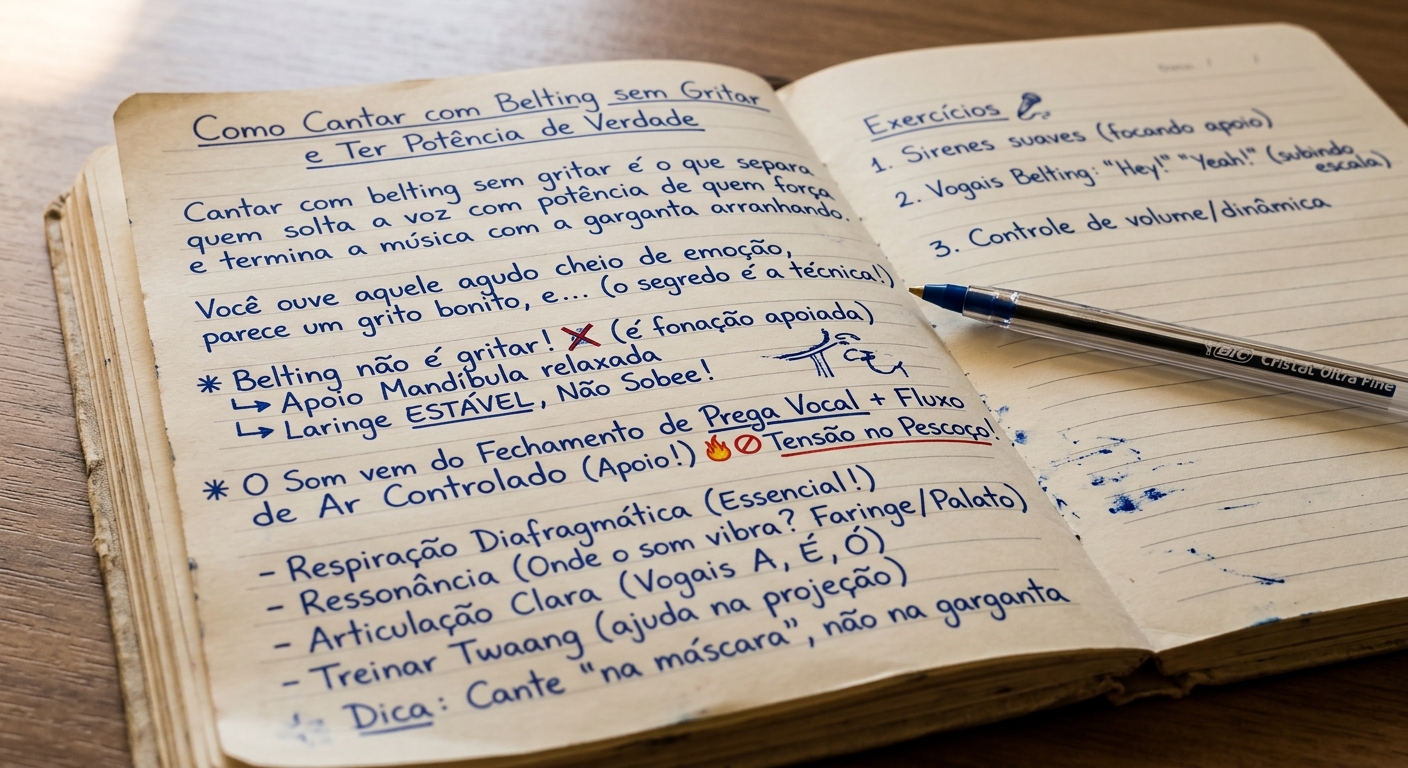 Como Cantar com Belting sem Gritar
e Ter Potência de Verdade
Cantar com belting sem gritar é o que separa
quem solta a voz com potência de quem força
e termina a música com a garganta arranhando.
Você ouve aquele agudo cheio de emoção,
parece um grito bonito, e... (o segredo é a técnica!)
* Belting não é gritar! ❌ (é fonação apoiada)
↳ Apoio Mandíbula relaxada
↳ Laringe ESTÁVEL, Não Sobee!
* O Som vem do Fechamento de Prega Vocal + Fluxo
de Ar Controlado (Apoio!) 🔥🚫 Tensão no Pescoço!
- Respiração Diafragmática (Essencial!)
- Ressonância (Onde o som vibra? Faringe/Palato)
- Articulação Clara (Vogais A, É, Ó)
- Treinar Twaang (ajuda na projeção)
Dica: Cante "na máscara", não na garganta
Exercícios 🎤
1. Sirenes suaves (focando apoio)
2. Vogais Belting: "Hey!" "Yeah!" (subindo
escala)
3. Controle de volume/dinâmica
BIC Cristal Ultra Fine